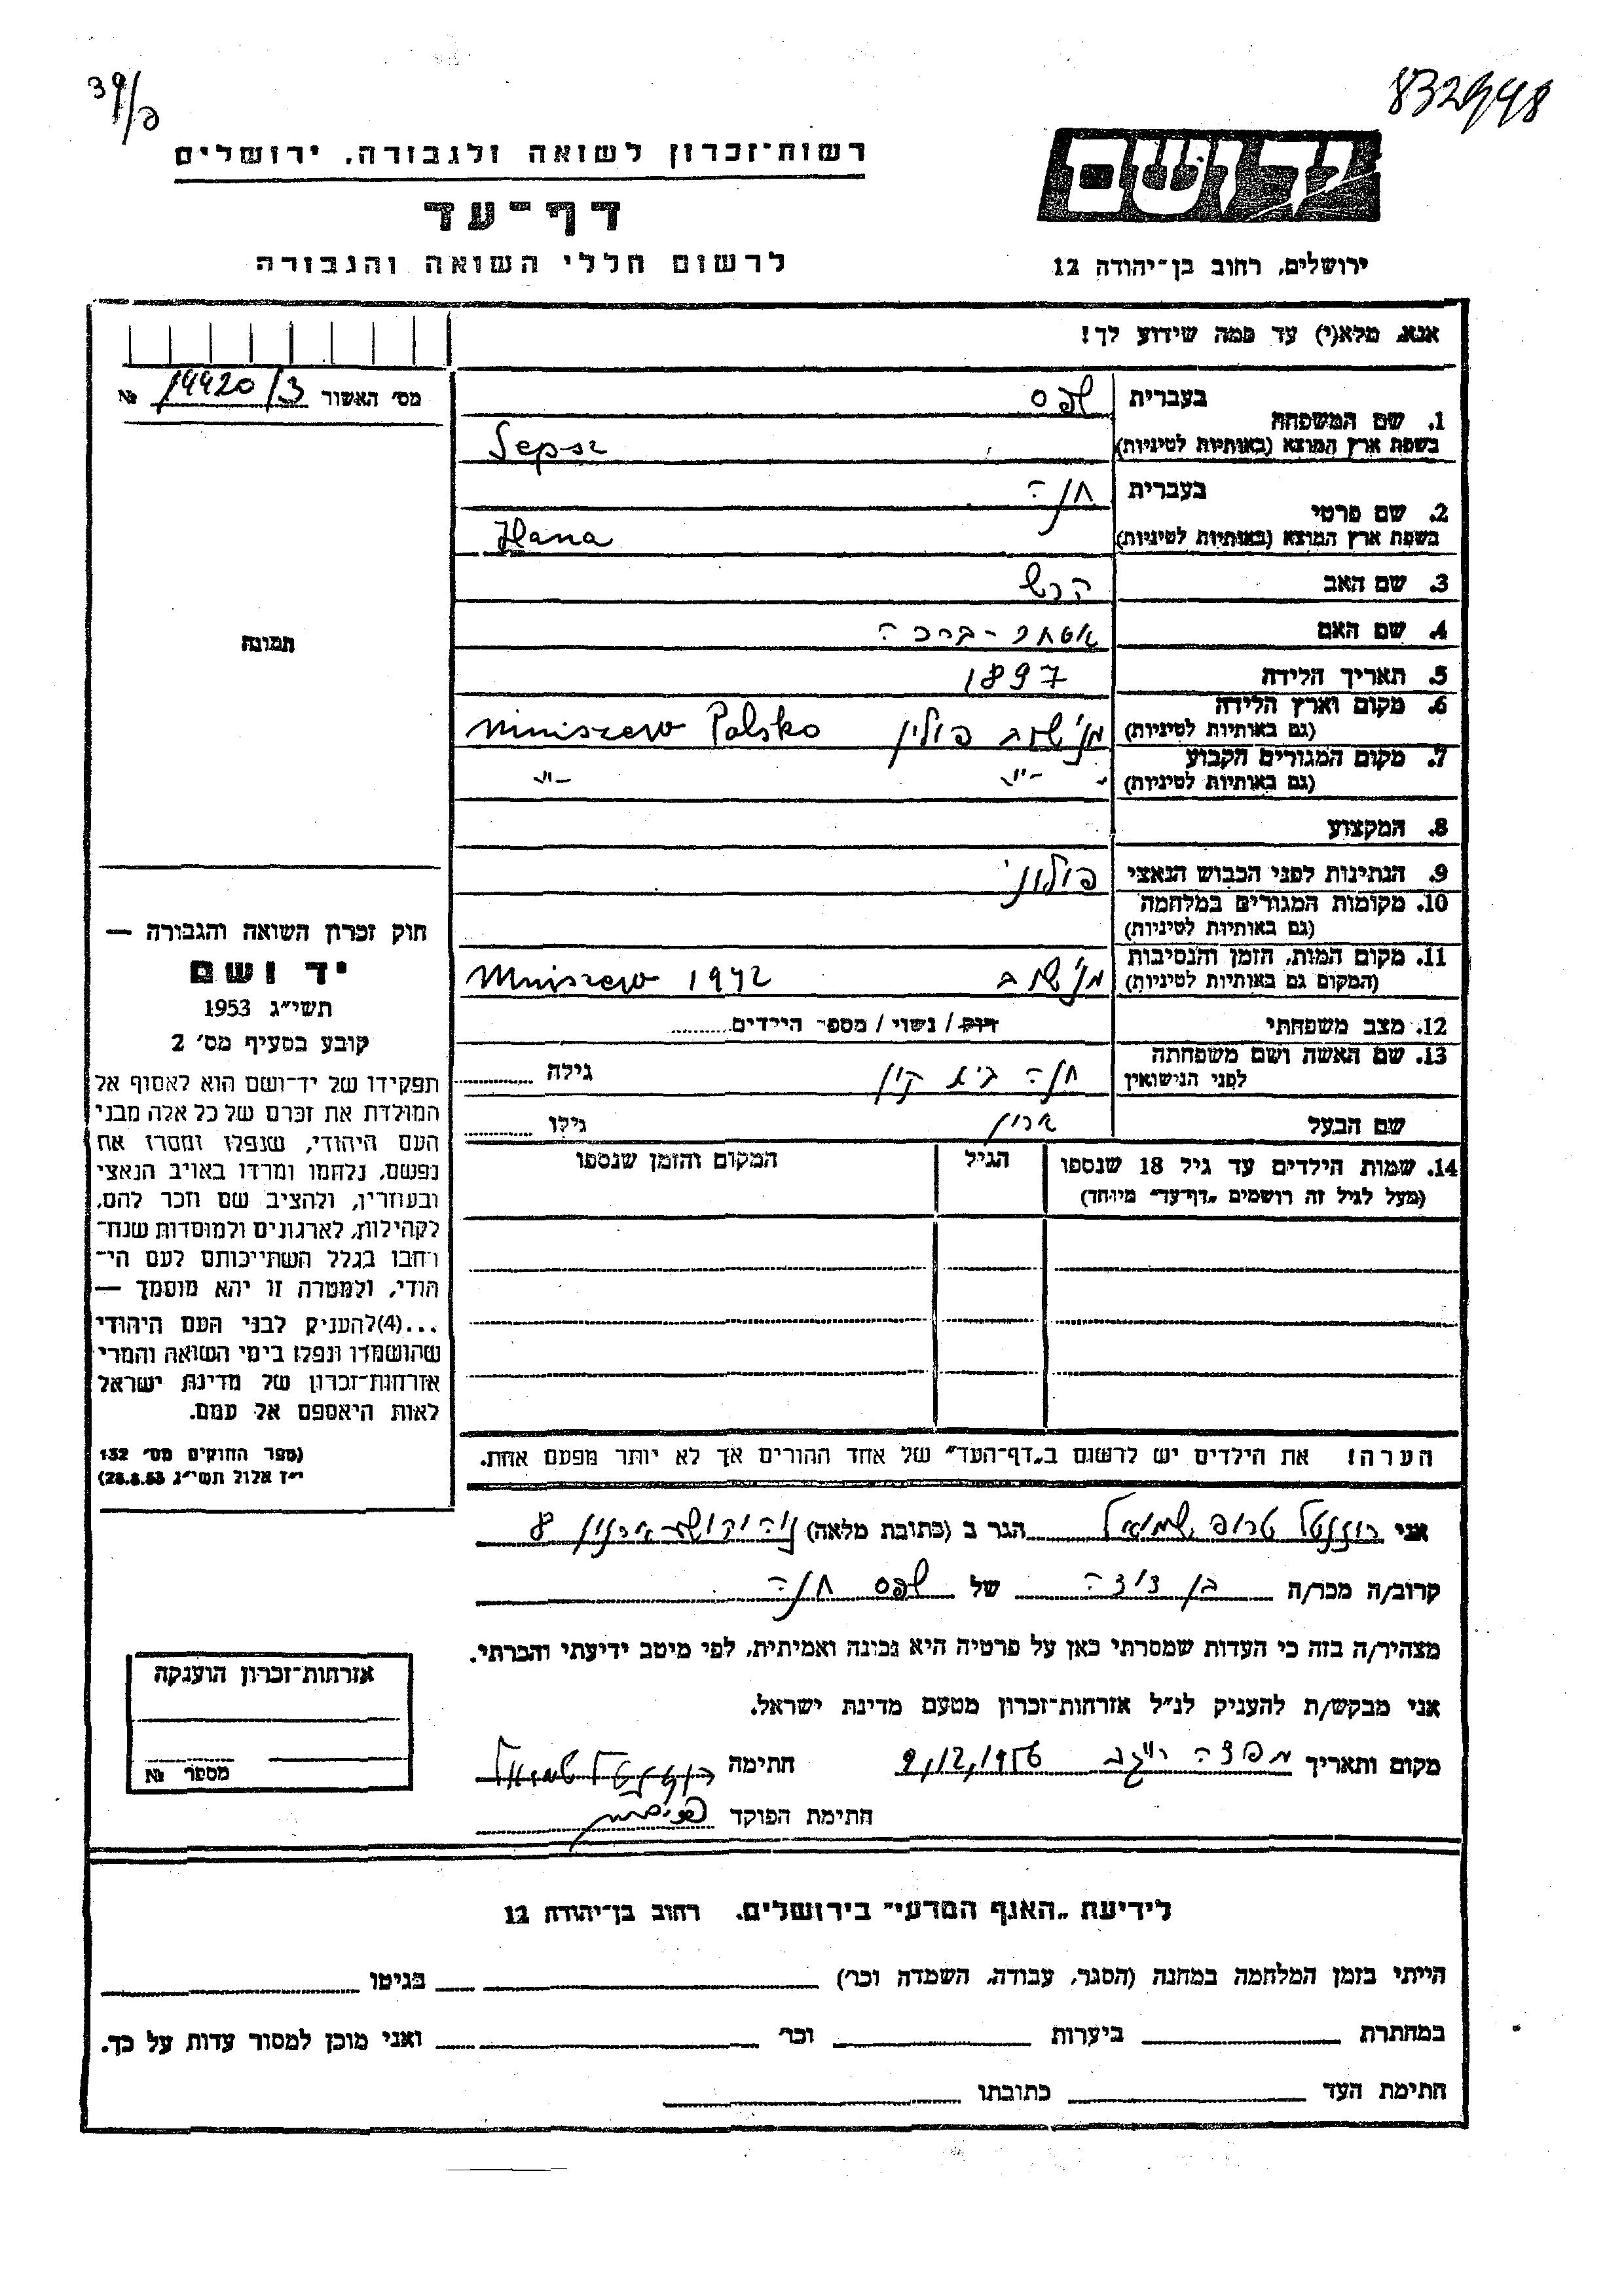 39/ם
832448
רשות־זכרון לשואה ולגבורה, ירושלים
דף־עד
לרשום חללי השואה והגבורה
יד ושם
ירושלים, רחוב בן־יהודה 12
אנא, מלא(י) עד כמה שידוע לך!
מס׳ האשור 14420/3 №
1. שם המשפחה
בעברית שפס
בשפת ארץ המוצא (באותיות לטיניות) Sepsz
2. שם פרטי
בעברית חנה
בשפת ארץ המוצא (באותיות לטיניות) Hana
3. שם האב הרש
4. שם האם אסתר-ברכה
5. תאריך הלידה 1897
6. מקום וארץ הלידה
(גם באותיות לטיניות) מנישב פולין Mniszew Polsko
7. מקום המגורים הקבוע
(גם באותיות לטיניות) -״- -״-
8. המקצוע
9. הנתינות לפני הכבוש הנאצי פולוני
10. מקומות המגורים במלחמה
(גם באותיות לטיניות)
11. מקום המות, הזמן והנסיבות
(המקום גם באותיות לטיניות) מנישב Mniszew 1942
12. מצב משפחתי רוק / נשוי / מספר הילדים
13. שם האשה ושם משפחתה
לפני הנישואין חנה גילה
שם הבעל ארון גילו
14. שמות הילדים עד גיל 18 שנספו
(מעל לגיל זה רושמים „דף־עד״ מיוחד)
הגיל
המקום והזמן שנספו
הערה! את הילדים יש לרשום ב„דף־העד״ של אחד ההורים אך לא יותר מפעם אחת.
תמונה
חוק זכרון השואה והגבורה —
יד ושם
תשי״ג 1953
קובע בסעיף מס׳ 2
תפקידו של יד־ושם הוא לאסוף אל
המולדת את זכרם של כל אלה מבני
העם היהודי, שנפלו ומסרו את
נפשם, נלחמו ומרדו באויב הנאצי
ובעוזריו, ולהציב שם וזכר להם,
לקהילות, לארגונים ולמוסדות שנח־
רבו בגלל השתייכותם לעם הי־
הודי, ולמטרה זו יהא מוסמך —
...(4)להעניק לבני העם היהודי
שהושמדו ונפלו בימי השואה והמרי
אזרחות־זכרון של מדינת ישראל
לאות היאספם אל עמם.
(ספר החוקים מס׳ 132
י״ז אלול תשי״ג 28.8.53)
אני רוזנטל שמואל הגר ב (כתובת מלאה) 8
קרוב/ה מכר/ה בן דודה של שפס חנה
מצהיר/ה בזה כי העדות שמסרתי כאן על פרטיה היא נכונה ואמיתית, לפי מיטב ידיעתי והכרתי.
אני מבקש/ת להעניק לנ״ל אזרחות־זכרון מטעם מדינת ישראל.
מקום ותאריך 9,12,1956 חתימה רוזנטל שמואל
חתימת הפוקד
אזרחות־זכרון הוענקה
מספר №
לידיעת „האגף המדעי״ בירושלים, רחוב בן־יהודה 12
הייתי בזמן המלחמה במחנה (הסגר, עבודה, השמדה וכר׳) בגיטו
במחתרת ביערות וכר׳ ואני מוכן למסור עדות על כך.
חתימת העד כתובתו